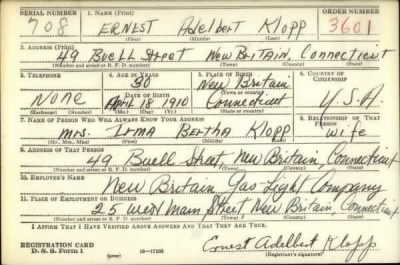 SERIAL NUMBER 1. NAME (Print) ORDER NUMBER
708 ERNEST Adelbert Klopp 3601
(First) (Middle) (Last)
2. ADDRESS (Print)
49 Buell Street New Britain, Connecticut
(Number and street or R. F. D. number) (Town) (County) (State)
3. TELEPHONE 4. AGE IN YEARS 5. PLACE OF BIRTH 6. COUNTRY OF CITIZENSHIP
30 New Britain
(Town or county)
None DATE OF BIRTH Connecticut U.S.A.
April 18 1910
(Exchange) (Number) (Mo.) (Day) (Yr.) (State or country)
7. NAME OF PERSON WHO WILL ALWAYS KNOW YOUR ADDRESS 8. RELATIONSHIP OF THAT PERSON
Mrs. Irma Bertha Klopp wife
(Mr., Mrs., Miss) (First) (Middle) (Last)
9. ADDRESS OF THAT PERSON
49 Buell Street, New Britain, Connecticut
(Number and street or R. F. D. number) (Town) (County) (State)
10. EMPLOYER'S NAME
New Britain Gas Light Company
11. PLACE OF EMPLOYMENT OR BUSINESS
25 West Main Street New Britain, Connecticut
(Number and street or R. F. D. number) (Town) (County) (State)
I AFFIRM THAT I HAVE VERIFIED ABOVE ANSWERS AND THAT THEY ARE TRUE.
Ernest Adelbert Klopp
REGISTRATION CARD
D. S. S. Form 1 (over) (Registrant's signature)